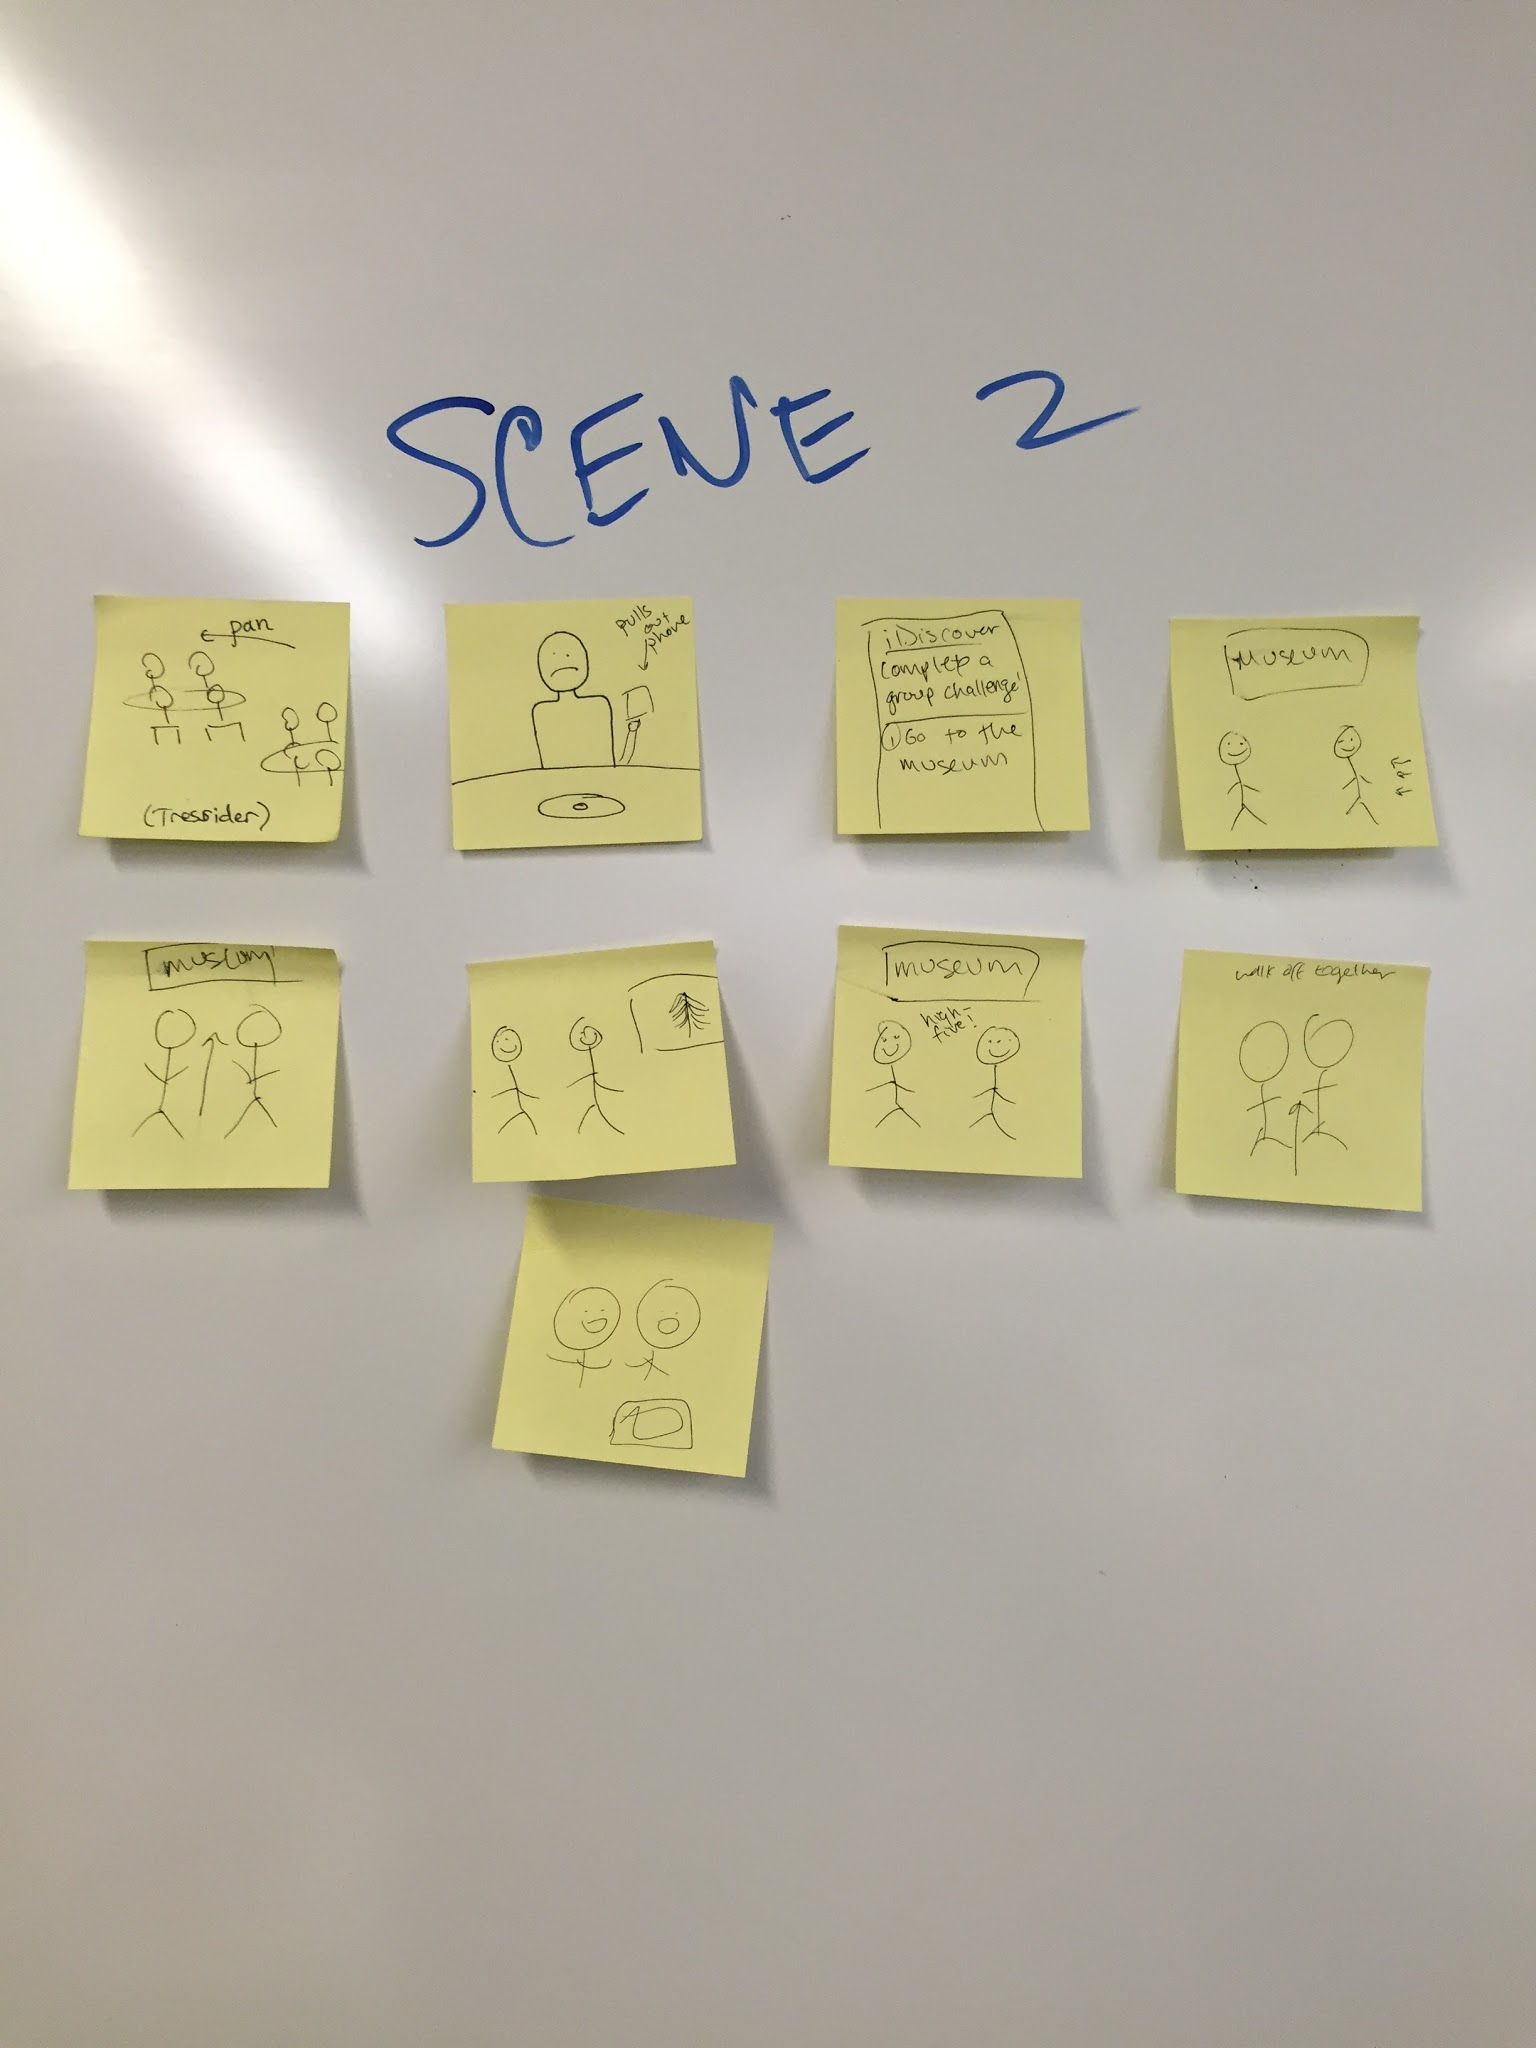 SCENE 2
pan
(Tressider)
pulls
out
phone
iDiscover
complete a
group challenge!
① Go to the
museum
museum
museum
museum
high-
five!
walk off together